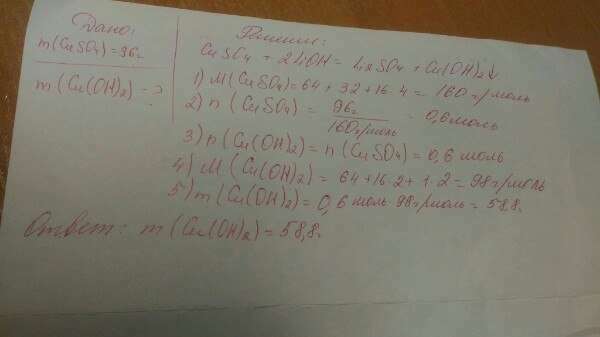 Дано:
m(CuSO4) = 96г
m(Cu(OH)2) = ?
Решение:
CuSO4 + 2LiOH = Li2SO4 + Cu(OH)2↓
1) M(CuSO4) = 64 + 32 + 16·4 = 160 г/моль
2) n(CuSO4) = 96г / 160г/моль = 0,6моль
3) n(Cu(OH)2) = n(CuSO4) = 0,6 моль
4) M(Cu(OH)2) = 64+16·2+1·2 = 98г/моль
5) m(Cu(OH)2) = 0,6 моль·98г/моль = 58,8г
Ответ: m(Cu(OH)2) = 58,8г